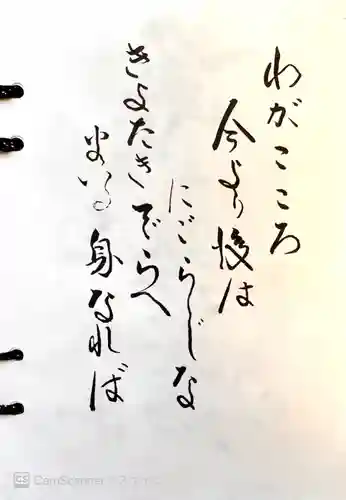 わがこころ
今より後は
にごらじな
きよたきでらへ
まいる身なれば
CS CamScanner